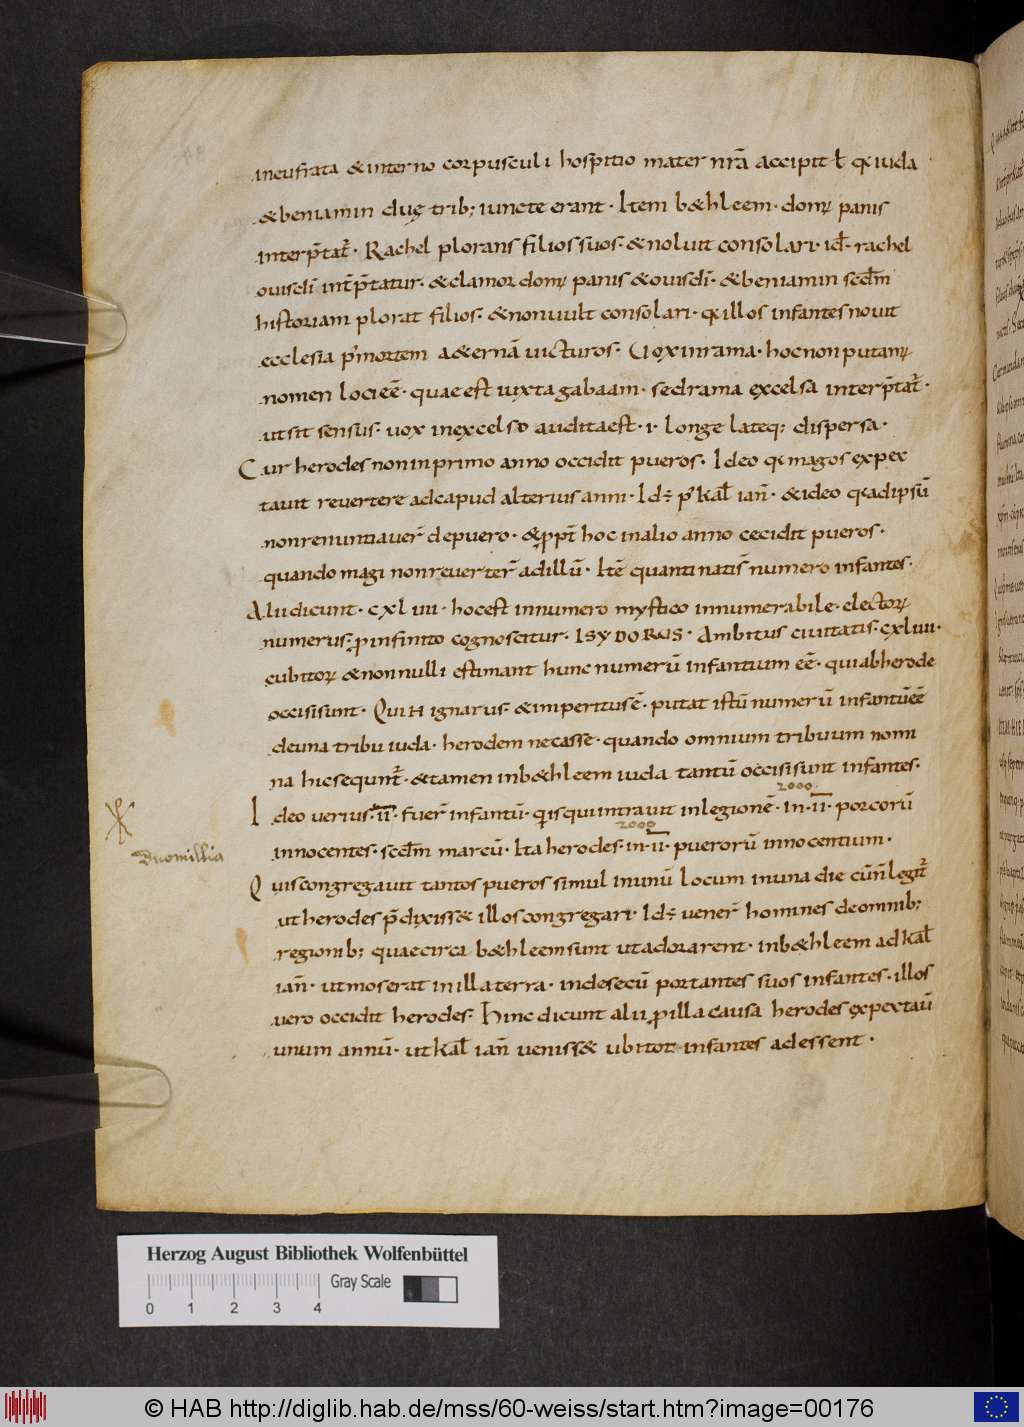 ineufrata &interno corpusculi hospitio mater nrā accipit ł q iuda
&beniamin duę trib; iuncte erant· Item b&hleem· domꝰ panis
interp̄tat̄· Rachel plorans filios suos· & noluit consolari· id̄· rachel
ouis di int̄p̄tatur· & clamor domꝰ panis & ouis di· & beniamin scd̄m
historiam plorat filios· & non uult consolari· q illos infantes nouit
ecclesia p' mortem a&ernā uicturos· Uox in rama· hoc non putamꝰ
nomen loci eē· quae est iuxta gabaam· sed rama excelsa interp̄tat̄·
ut sit sensus· uox in excelso audita est· i· longe lateq; dispersa·
Cur herodes non in primo anno occidit pueros· Ideo q magos expec
tauit reuertere ad capud alterius anni· Id ÷ p' kał ian̄· & ideo q adipsū
non renuntiauer̄ de puero· & ppt̄ hoc in alio anno cecidit pueros·
quando magi non reuerter̄ ad illū· Itē quanti natis numero infantes·
Alii dicunt· cxl iiii· hoc est in numero mystico innumerabile· electoꝝ
numerus· p infinito cognoscitur· ISYDORUS· Ambitus ciuitatis· cxliiii·
cubitoꝝ & nonnulli estimant hunc numerū infantium eē· qui ab herode
occisi sunt· Qui H ignarus· & imperitus ē· putat istū numerū infantū eē
de una tribu iuda· herodem necasse· quando omnium tribuum nomi
na hic sequnt̄· & tamen in b&hleem iuda tantū occisi sunt infantes·
2000
Ideo uerius· ii· fuer̄ infantū· q̄ris qui intrauit in legionē· in· ii· porcorū
2000
duomillia
innocentes· scd̄m marcū· Ita herodes· in· ii· puerorū innocentium·
Quis congregauit tantos pueros simul in unū locum in una die cū n̄ legit̄
ut herodes p̄dixiss& illos congregari· Id ÷ uener̄ homines de omnib;
regionib; quae circa b&hleem sunt ut adorarent· in b&hleem ad kał
ian̄· ut mos erat in illa terra· inde secū portantes suos infantes· illos
uero occidit herodes· Hinc dicunt alii p illa causa herodes expectaū
unum annū· ut kał ian̄ ueniss& ubi tot infantes adessent·
Herzog August Bibliothek Wolfenbüttel
Gray Scale
0 1 2 3 4
© HAB http://diglib.hab.de/mss/60-weiss/start.htm?image=00176